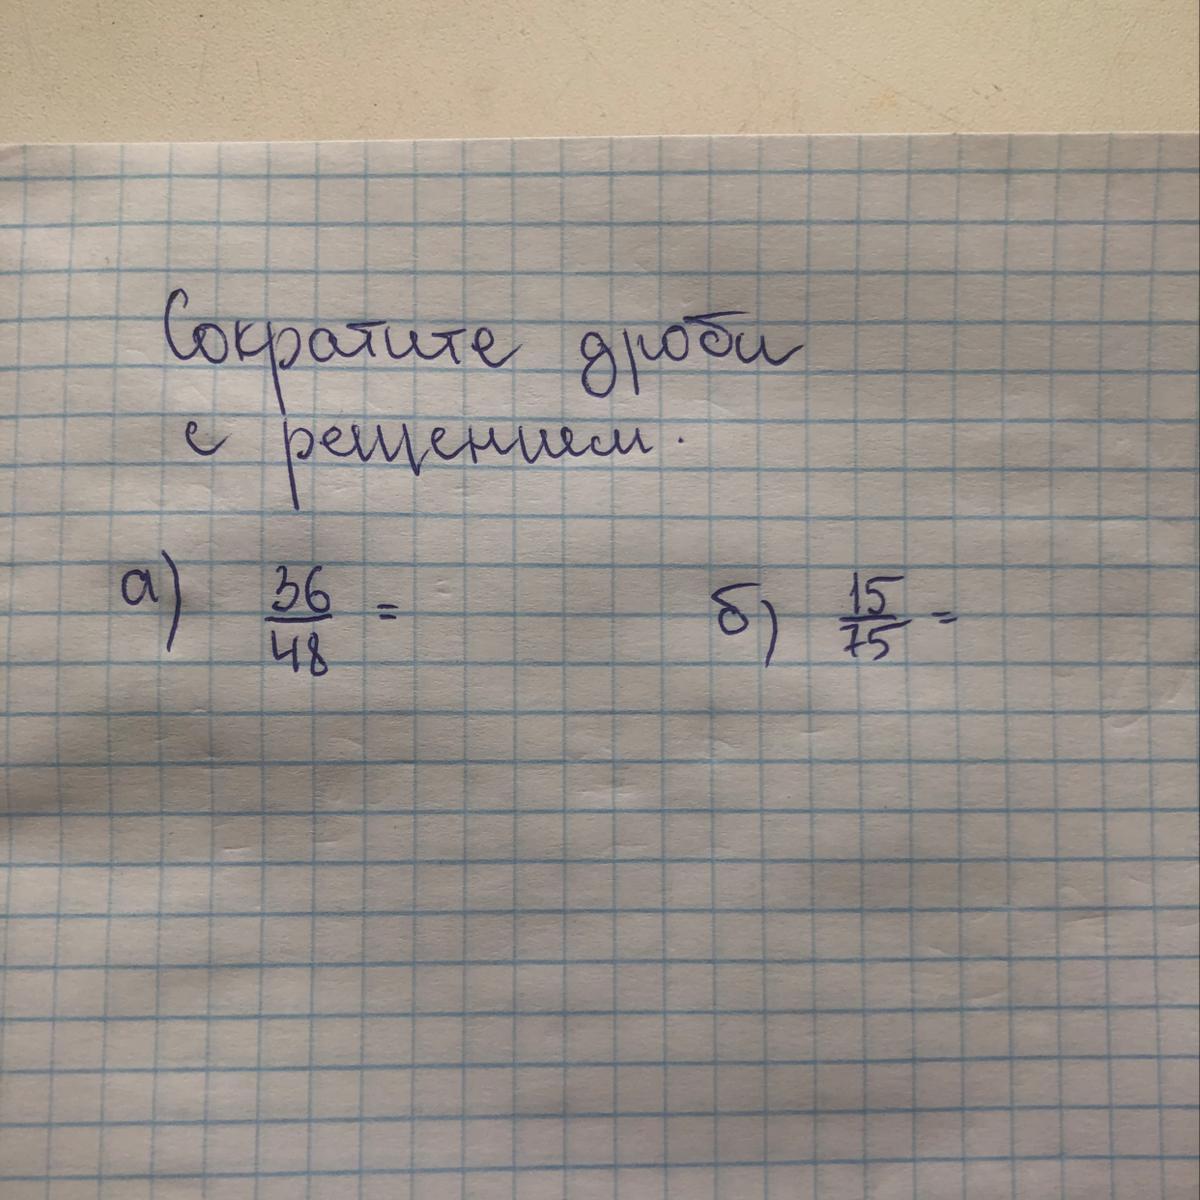 Сократите дроби
с рещением.
а) 36/48 = б) 15/75 =